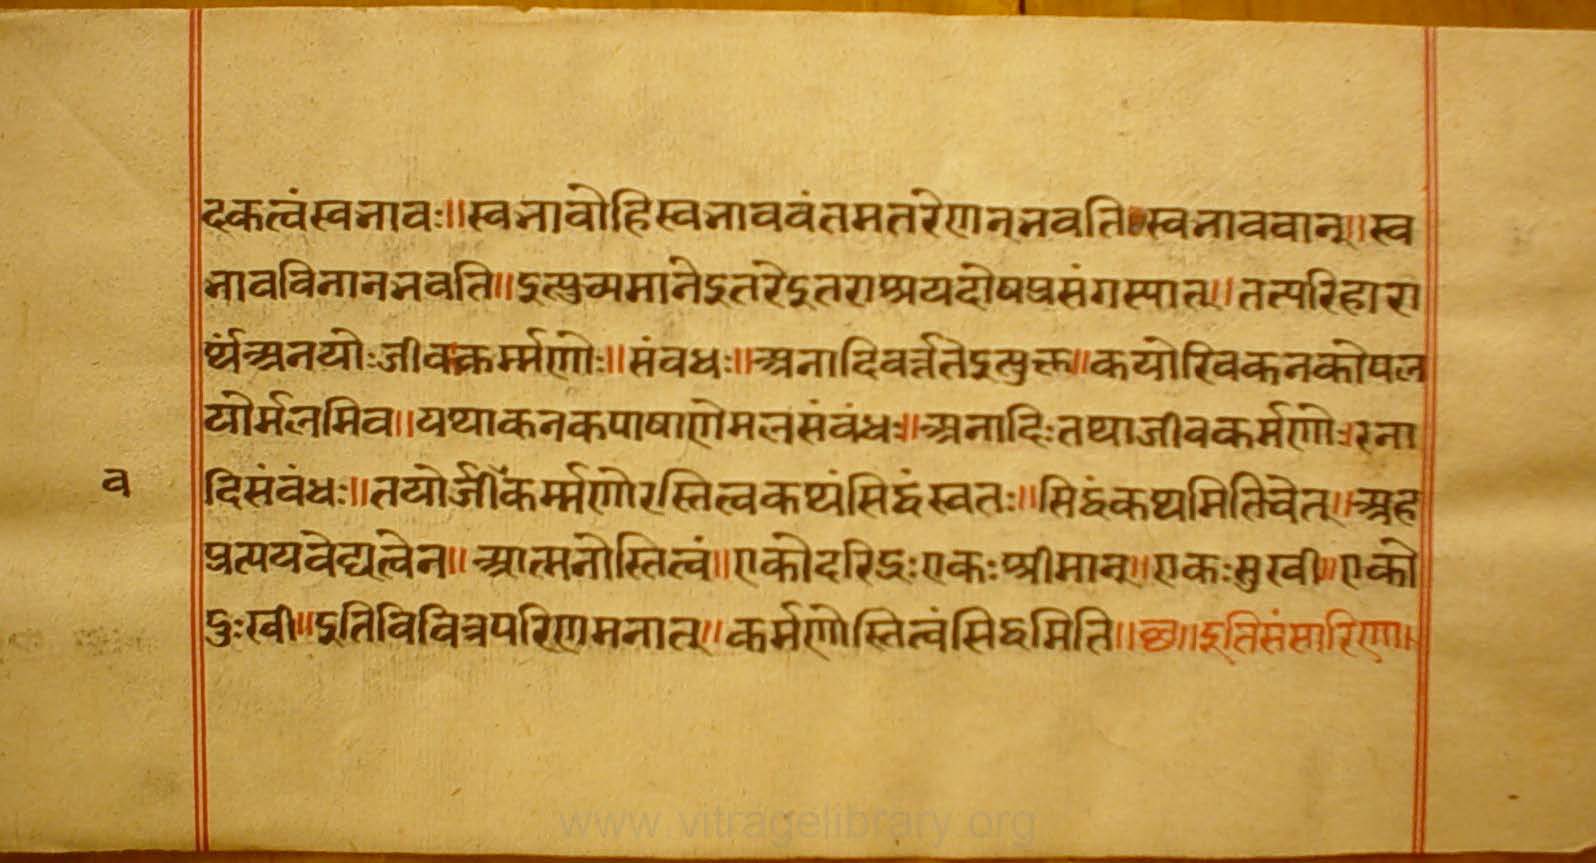 दकत्वंस्वभावः॥स्वभावोहिस्वभाववंतमतरेणनभवति॥स्वभाववान्॥स्व
भावविनानभवति॥इत्युच्यमानेइतरेइतराश्रयदोषप्रसंगस्यात्॥तत्परिहारा
र्थंअनयोःजीवकर्म्मणोः॥संवधः॥अनादिवर्त्ततेइत्युक्त॥कयोरिवकनकोपल
योर्मलमिव॥यथाकनकपाषाणेमलसंवंधः॥अनादिःतथाजीवकर्मणोःरना
व
दिसंवंधः॥तयोर्जीकर्म्मणोरस्तित्वकथंसिद्धंस्वतः॥सिद्धंकथमितिचेत्॥अह
प्रत्ययवेद्यत्वेन॥आत्मनोस्तित्वं॥एकोदरिद्रःएकःश्रीमान्॥एकःसुखी॥एको
दुःखी॥इतिविचित्रपरिणमनात्॥कर्मणोस्तित्वंसिद्धमिति॥छ॥इतिसंसारिणा
www.vitragelibrary.org